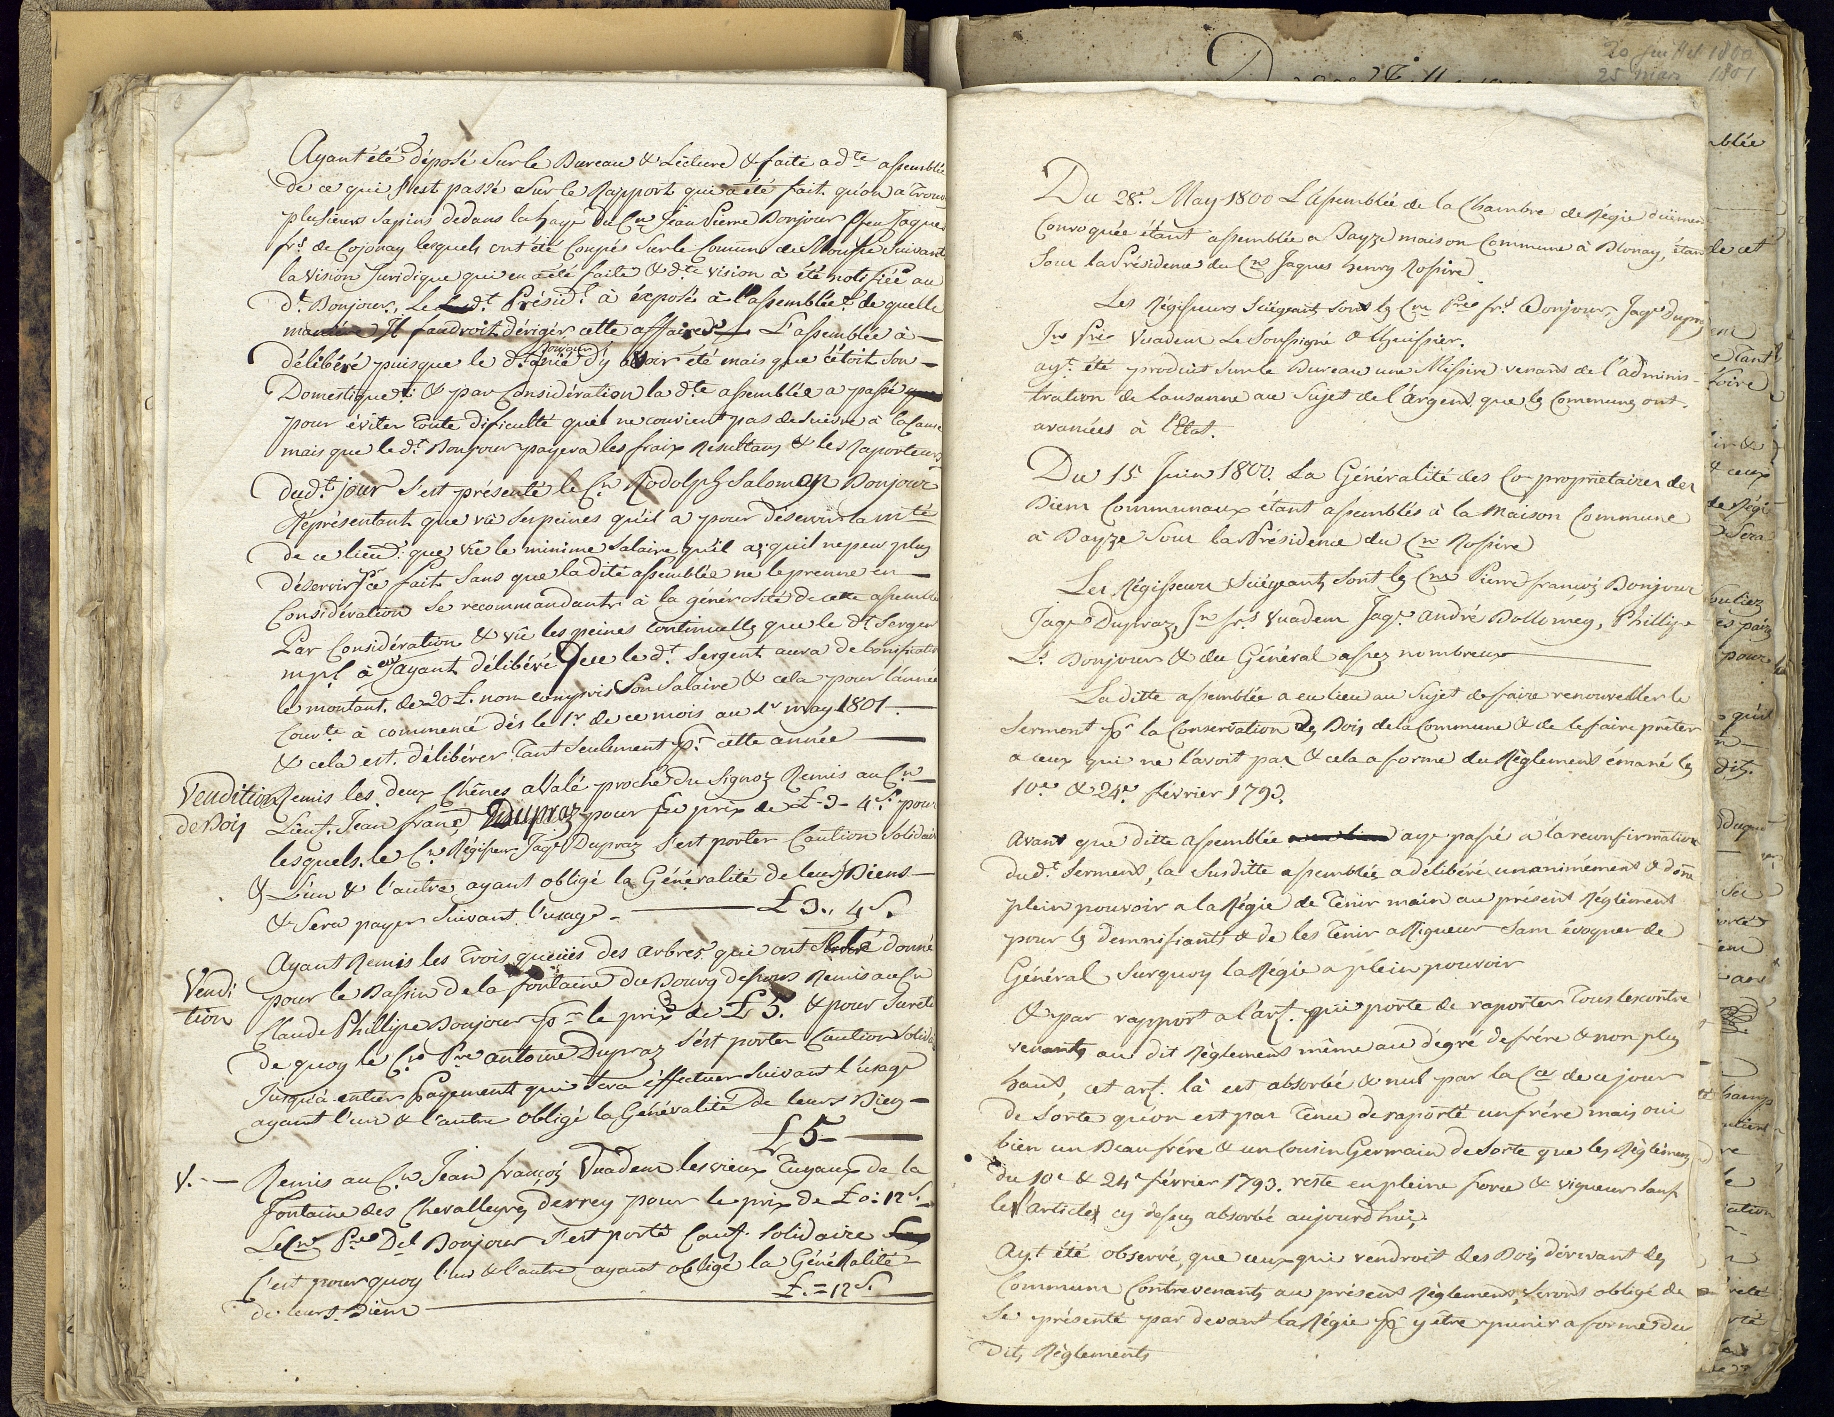 Ayant été déposé sur le Bureau & Lecture & faite a dte assemblée
de ce qui s'est passé sur le Rapport qui a été fait qu'on a trouvé
plusieurs sapins dedans la haye du Cn Jean Pierre Bonjour feu Jaques
frs de Cojonay lesquels ont été coupés sur le Comun de suivant
la vision Juridique qui en a été faite & dte vision à été notifiée au
dt Bonjour, Le dt Présidt à éxposés à l'assemblée de quelle
manière Il faudroit dériger cette affaire L'assemblée à
délibéré puisque le dt nie d'y avoir été mais que c'étoit son
Domestique & par Considération la dte assemblée a passé que
pour éviter toute dificulté qu'il ne convient pas de suivre à la Cause
mais que le dt Bonjour payera les fraix Résultans & les Raporteurs
dudt jour s'est présenté le Cn Rodolph Salomon Bonjour
Réprésentant que vû ses peines qu'il a pour désservir la mté
de ce lieu: que vû le minime salaire qu'il a; qu'il ne peu plus
désservir ce fait sans que la dite assemblée ne le prenne en
Considération se recommandant à la générosité de cette assemblée
Par Considération & vû les peines continuelles que le dt Sergent
mpl à en ayant délibéré Que le dt Sergent aura de bonification
le montant de 20 £. non compris son salaire & cela pour l'année
Courte à commencé dès le 1r de ce mois au 1r may 1801.
& cela est délibérer tant seulement pr cette année
Vendition
de Bois
Remis les deux Chênes a Valé proche du Signoz Remis au Cn
Lieut. Jean frans Dupraz pour le prix de £ 3 - 4 s. pour
lesquels le Cn Régisseur Jaqs Dupraz s'est porter Caution Solidaire
& L'un & l'autre ayant obligé la Généralité de leurs Biens
& sera payer suivant l'usage - £ 3., 4 s.
Vendi
tion
Ayant Remis les trois queuës des arbres qui ont été donné
pour le Bassin de la fontaine du Bourg dessous Remis au Cn
Claude Phillipe Bonjour pr le prix de £ 5. & pour Sureté
de quoy le Cn Pre antoine Dupraz s'est porter Caution Solidaire
Jusqu'à entier Payement qui sera éffectuer suivant l'usage
ayant l'un & l'autre obligé la Généralité de leurs Biens
£ 5
V. - Remis au Cn Jean françois Vuadens les vieux Tuyaux de la
fontaine des Chevalleyres derrey pour le prix de £ 0: 12 s.
Le Cn Pre Dd Bonjour s'est porté Caut. solidaire
C'est pourquoy l'un & l'autre ayant obligé la Généralité
de leurs Biens £. = 12 s.
20 juillet 1800
25 mars 1801
Du 28e May 1800 L'assemblée de la Chambre de Régie düemen
Convoquée étant assemblée a Bayze maison Commune à Blonay, étant
sous la Présidence du Cn Jaques henry Rossire
Les Régisseurs Siégeant sont les Cns Pre frs Bonjour, Jaqs Dupraz
Jn frs Vuadens Le Soussigné & Huissier.
ayt été produit sur le Bureau une Missive venans de l'adminis-
tration de Lausanne au sujet de l'argent que les Communes ont
avancées à l'Etat.
Du 15 Juin 1800. La Généralité des Co-propriétaires des
Biens Communaux étant assemblés à la Maison Commune
à Bayze sous la Présidence du Cn Rossire
Les Régisseurs Siégeants sont les Cns Pierre françois Bonjour
Jaqs Dupraz, Jn frs Vuadens Jaqs andré Bollomey, Phillipe
Ls Bonjour & du Général assez nombreux
La ditte assemblée a eu lieu au sujet de faire renouveller le
serment pr la Conservation des Bois de la Commune & de le faire prêter
a ceux qui ne l'avoit pas & cela a forme du Règlement émané les
10e & 24e février 1793.
Avant que ditte assemblée aye passé a la reconfirmation
dudt serment, la susditte assemblée a délibéré unanimément & doñé
plein pouvoir a la Régie de Tenir main au présent Règlement
pour les demnifiants & de les Tenir a Rigueur sans évoquer de
Général, surquoy la Régie a plein pouvoir
& par rapport a l'art. qui porte de raporter Tous les contre
venants au dit Règlement même au dégré de frére & non plus
haut, cet art. là est absorbé & nul par la Cce de ce jour
de sorte qu'on est pas Tenu de raporté un frére mais oui
bien un Beau frére & un Cousin Germain de sorte que les Règlemens
du 10e & 24e février 1793. reste en pleine force & vigueur sauf
les articles cy dessus absorbé aujourd'hui.
Ayt été observé, que ceux qui vendroit des Bois dérivant des
Communs Contrevenants au présens Règlement seront obligé de
se présenté par devant la Régie pr y être puni a forme du
dits Règlements